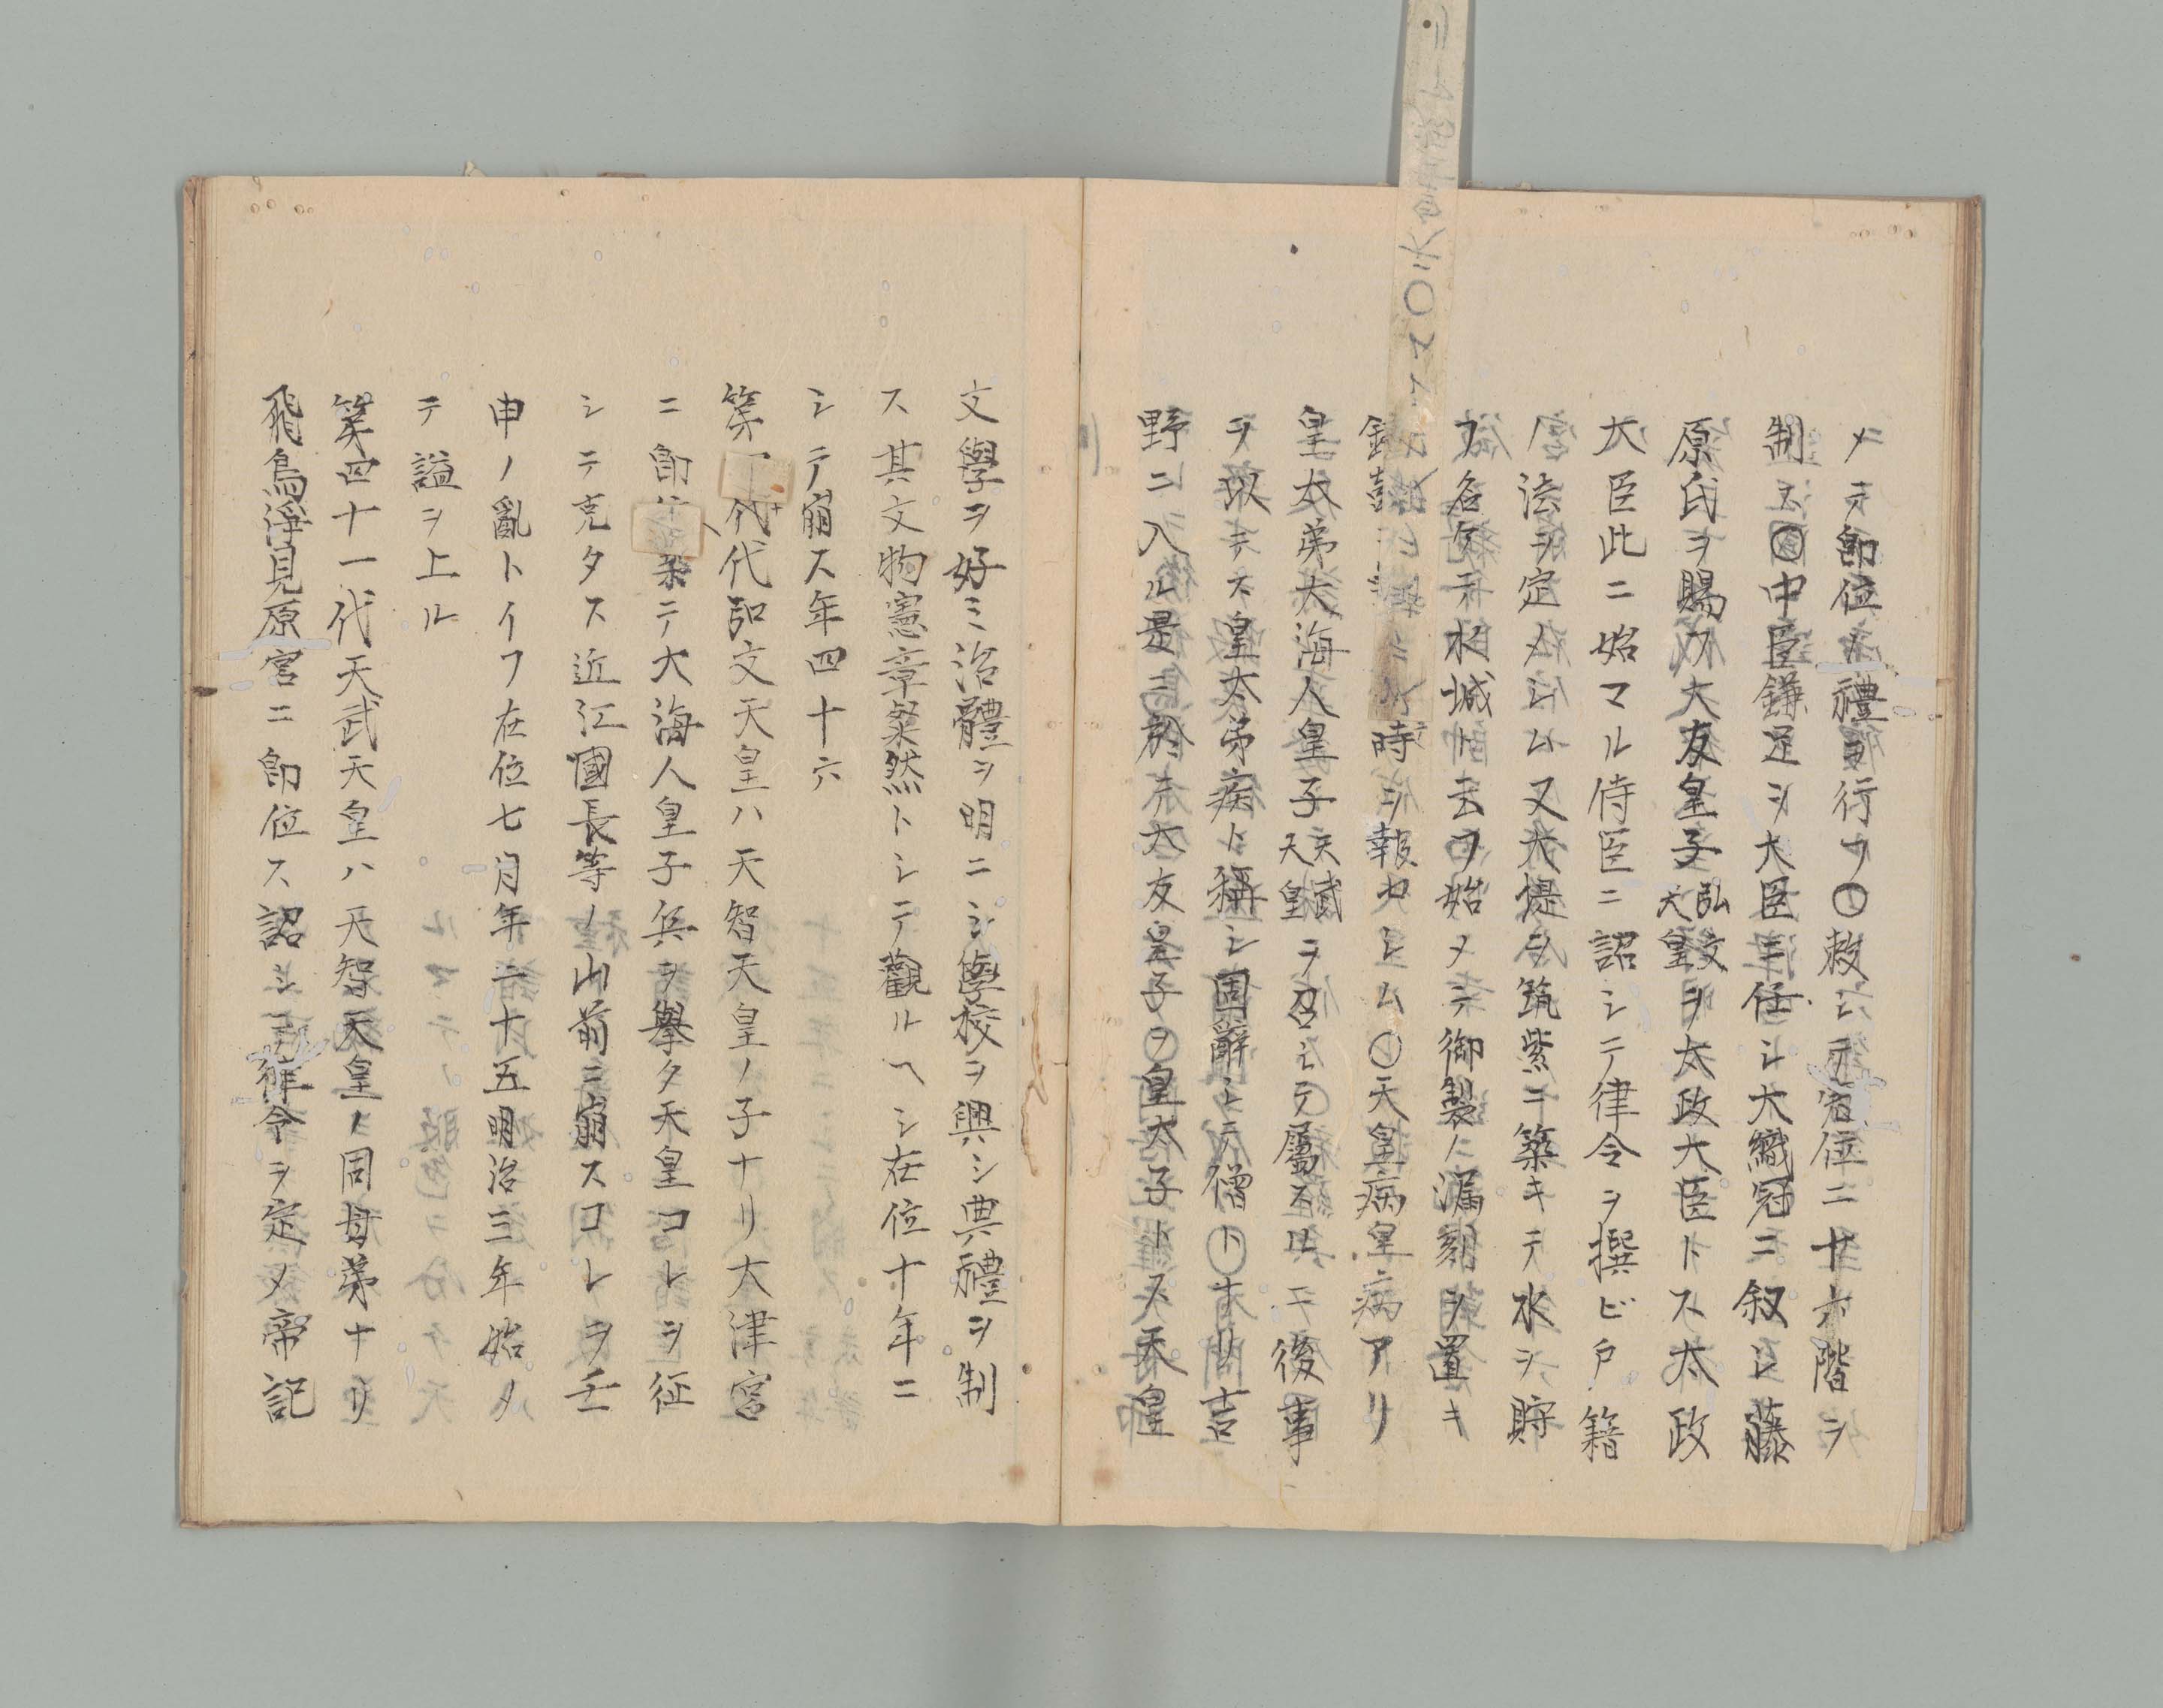 メテ卽位ノ禮ヲ行フ〇敕シテ官位二十六階ヲ
制ス〇中臣鎌足ヲ大臣ニ任シ大織冠ニ叙シ藤
原氏ヲ賜フ大友皇子弘文天皇ヲ太政大臣トス太政
大臣此ニ始マル侍臣ニ詔シテ律令ヲ撰ビ戸籍
ノ法ヲ定メシム又大堤ヲ筑紫ニ築キテ水ヲ貯
フ名ケテ水城ト云フ始メテ御製ノ漏刻ヲ置キ
鐘鼓 時ヲ報セシム〇天皇病皇病アリ
皇太弟大海人皇子天武天皇ヲ召シテ屬スルニ後事
ヲ以テス皇太弟病ト稱シ固辭シテ僧トナリ吉
野ニ入ル是ニ於テ大友皇子ヲ皇太子トス天皇
文學ヲ好ミ治體ヲ明ニシ學校ヲ興シ典禮ヲ制
ス其文物憲章粲然トシテ觀ルヘシ在位十年ニ
シテ崩ス年四十六
第 代弘文天皇ハ天智天皇ノ子ナリ大津宮
ニ卽 テ大海人皇子兵ヲ擧ク天皇コレヲ征
シテ克タス近江國長等ノ山前ニ崩スコレヲ壬
申ノ亂トイフ在位七月年二十五明治三年始メ
テ謚ヲ上ル
第四十一代天武天皇ハ天智天皇ノ同母弟ナリ
飛鳥淨見原宮ニ卽位ス詔シテ律令ヲ定メ帝記